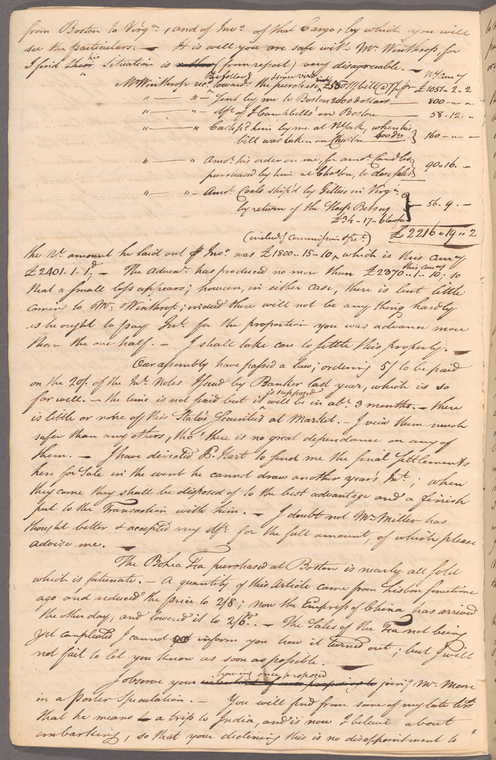 from Boston to Virga, and of Invo. of that Cargo, by which you will
see the particulars. — It is well you are safe with Mr. Winthrop, for
I find situation is (from report) very disagreeable. —
N York Cury
Mr Winthrop toward the purchase, for £1051-2-2
" — " — Ditto by me to Boston 2000 dollars — 800 — " —
" — " — Campbells on Boston 58.12. —
" — " — him by me at NYork, when his
bill was taken on Charlon 160 — " —
" — " — Amot. his order on me, for amot.
purchased by him at Chaston, to 90.16. —
" — " — Amot. Cash ship'd by Gillies in Virga
by return of the Sloop Betsey 56. 9. —
£34-17-
£2216-19-2
(includg Commission &c.)
the Nt. amount he laid out Invo. was £1800-15-10, which is this Curcy
£2401.1.1; — The Advenr. has produced no more than £2370-1-10
this Curcy of
that a small loss appears; however, in either case, there is but little
coming to Mr. Winthrop; indeed there will not be any thing hardly
as he ought to pay Int. for the proportion you was advance more
than the one half. — I shall take care to settle this properly. —
Our assembly have passed a law, ordering 5/ to be paid
on the 20/ of the Int. Notes issued by Banker last year, which is so
far well. — the time is not fixed but is supposed it will be in abt. 3 months. — there
is little or none of this State's Securities at Market. — I view them much
safer than any others, tho' there is no great dependance on any of
them. — I have directed B. Hart to send me the final settlements
here for Sale in the event he cannot draw another years Int.; when
they come they shall be disposed of to the best advantage and a finish
put to the Transaction with him. — I doubt not Mr. Miller has
thought better & accepted my dft. for the full amount of which, please
advise me. —
The Bohea Tea purchased at Boston is nearly all sold
which is fortunate. — A quantity of this Article came from Lisbon sometime
ago and reduced the price to 2/8; now the Empress of China has arrived
the other day, and lowered it to 2/6. — The Sales of the Tea not being
yet compleated I cannot inform you how it turned out; but I will
not fail to let you know as soon as possible. —
I observe your having once proposed joing Mr. Moore
in a Porter Speculation. — You will find from some of my late
that he means a trip to India, and is now I believe about
embarking, so that your declining this is no disappointment to